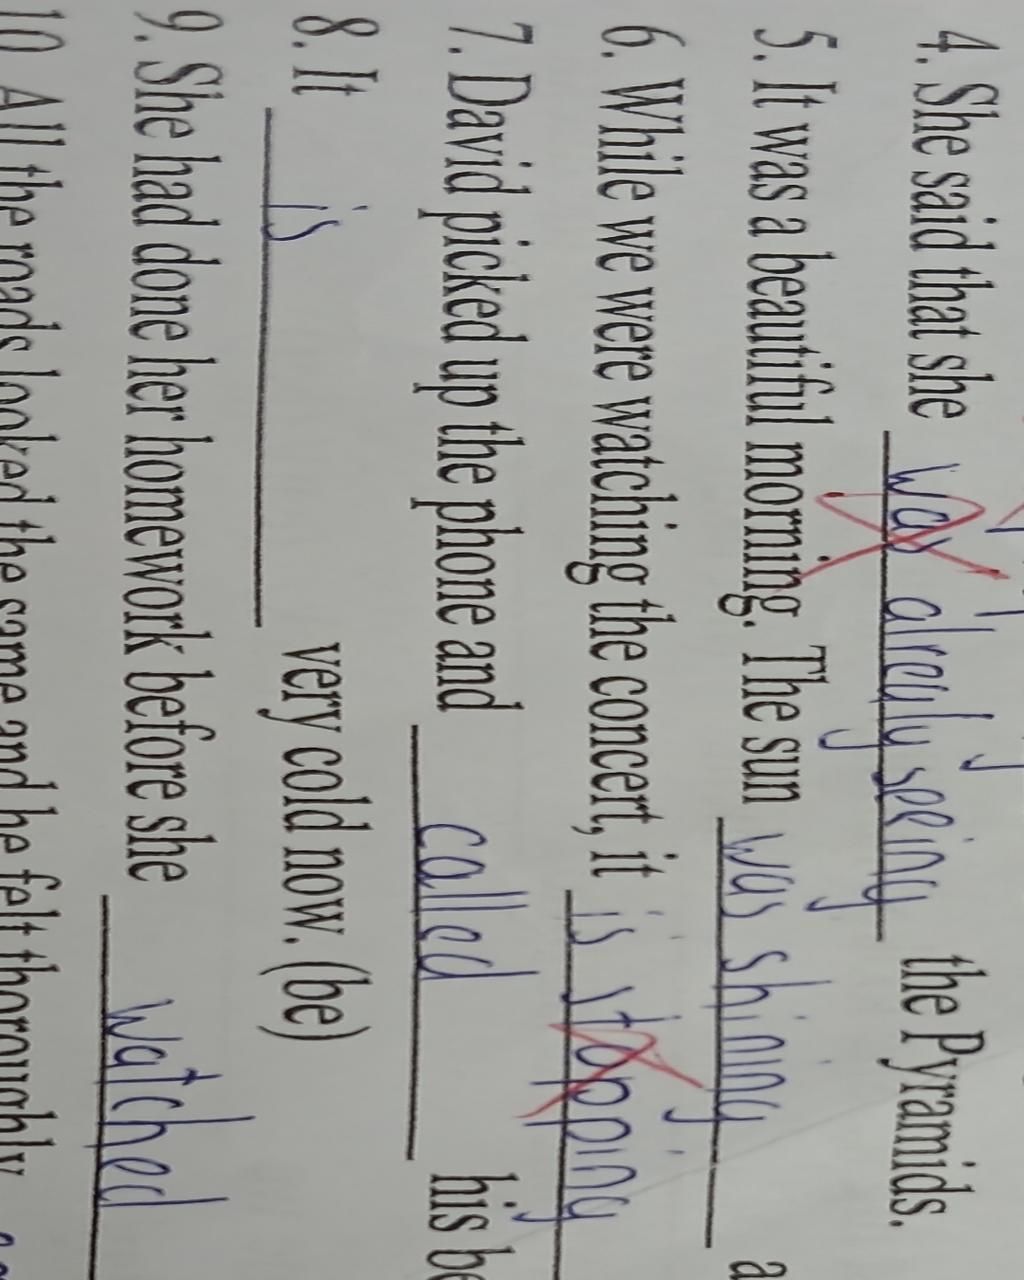 4. She said that she was alrealy seeing the Pyramids.
5. It was a beautiful morning. The sun was shining a
6. While we were watching the concert, it is stopping
7. David picked up the phone and called his be
8. It is very cold now. (be)
9. She had done her homework before she watched
10 All the roads looked the same and he felt thoroughly